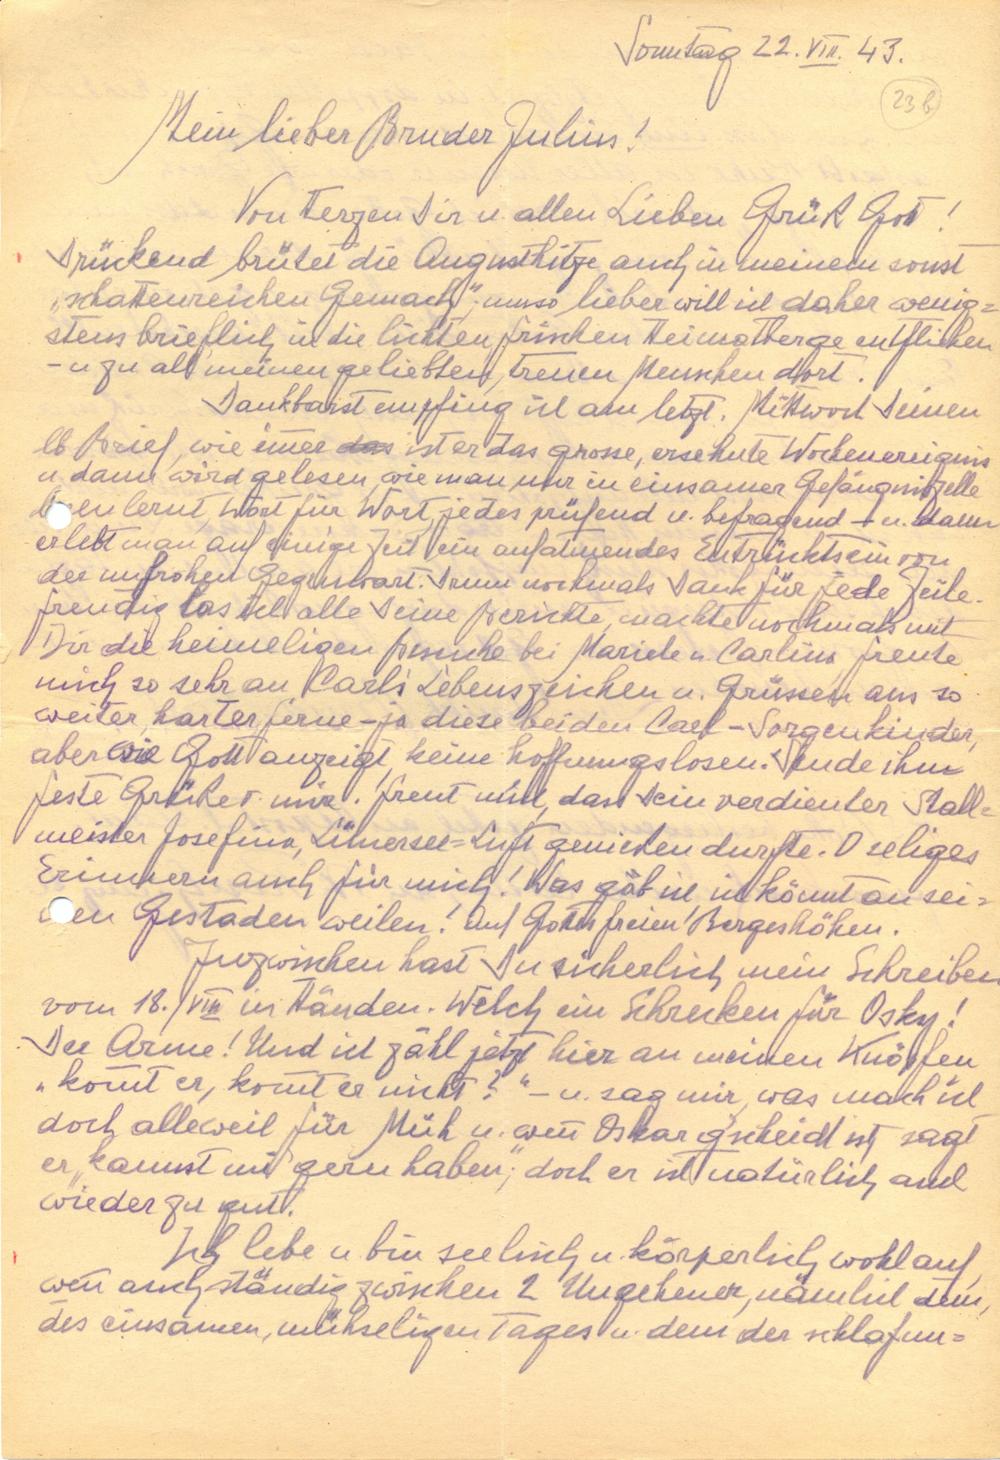 Sonntag 22. VIII. 43.
23b
Mein lieber Bruder Julius!
Von Herzen Dir u. allen Lieben Grüß Gott!
Drückend brütet die Augusthitze auch in meinem sonst
„schattenreichen Gemach", umso lieber will ich daher wenig=
stens brieflich in die lichten frischen Heimatberge entfliehen
- u zu all meinen geliebten, treuen Menschen dort.
Dankbarst empfing ich am letzt. Mittwoch Deinen
lb Brief, wie immer das ist er das grosse, ersehnte Wochenereignis
u dann wird gelesen, wie man nur in einsamer Gefängniszelle
lesen lernt, Wort für Wort, jedes prüfend u. befragend - u. dann
erlebt man auf einige Zeit ein aufatmendes Entrücktsein von
der unfrohen Gegenwart. Drum nochmals Dank für jede Zeile.
freudig las ich alle Deine Berichte, machte nochmals mit
Dir die heimeligen Besuche bei Mariele u. Carlina freute
mich so sehr an Carl's Lebenszeichen u. Grüssen aus so
weiter harter ferne - ja diese beiden Carl - Sorgenkinder,
aber wie Gott anzeigt, keine hoffnungslosen. Sende ihm
feste Grüße v. mir. freut mich, dass Dein verdienter Stall=
meister Josefina, Lünersee=Luft genießen durfte. O seliges
Erinnern auch für mich! Was gäb ich ich könnt an sei=
nen Gestaden weilen! Auf Gottes freien Bergeshöhen.
Inzwischen hast Du sicherlich mein Schreiben
vom 18./VIII in Händen. Welch ein Schrecken für Osky!
Der Arme! Und ich zähl jetzt hier an meinen Knöpfen
„kom̄t er, kom̄t er nicht?" - u. sag mir, was mach ich
doch alleweil für Müh u. wen̄ Oskar gscheidt ist, sagt
er „kannst mi gern haben"; doch er ist natürlich auch
wieder zu gut.
Ich lebe u bin seelisch u. körperlich wohlauf,
wen̄ auch ständig zwischen 2 Ungeheuer, nämlich dem,
des einsamen, mühseligen Tages u. dem der schlafun=